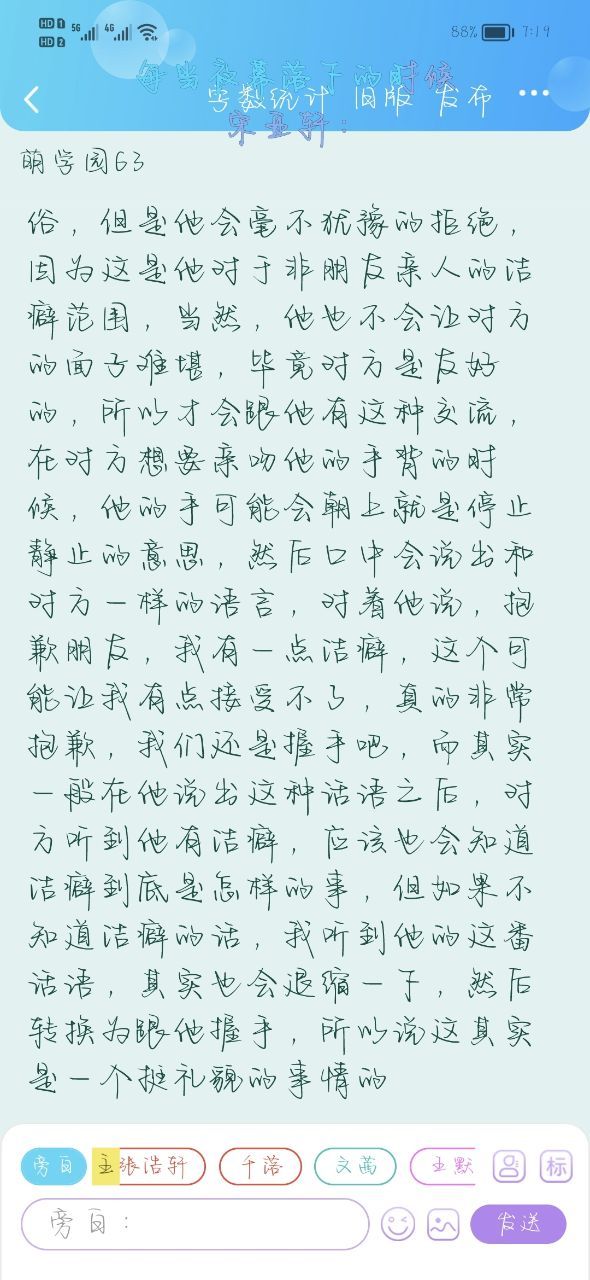 HD 1 5G 4G 88% 7:19
HD 2
每当夜幕落下的时候
字数统计 旧版 发布
宋亚轩：
萌学园63
俗，但是他会毫不犹豫的拒绝，
因为这是他对于非朋友亲人的洁
癖范围，当然，他也不会让对方
的面子难堪，毕竟对方是友好
的，所以才会跟他有这种交流，
在对方想要亲吻他的手背的时
候，他的手可能会朝上就是停止
静止的意思，然后口中会说出和
对方一样的语言，对着他说，抱
歉朋友，我有一点洁癖，这个可
能让我有点接受不了，真的非常
抱歉，我们还是握手吧，而其实
一般在他说出这种话语之后，对
方听到他有洁癖，应该也会知道
洁癖到底是怎样的事，但如果不
知道洁癖的话，我听到他的这番
话语，其实也会退缩一下，然后
转换为跟他握手，所以说这其实
是一个挺礼貌的事情的
旁白 主 张浩轩 千落 文茜 王默 标
旁白： 发送